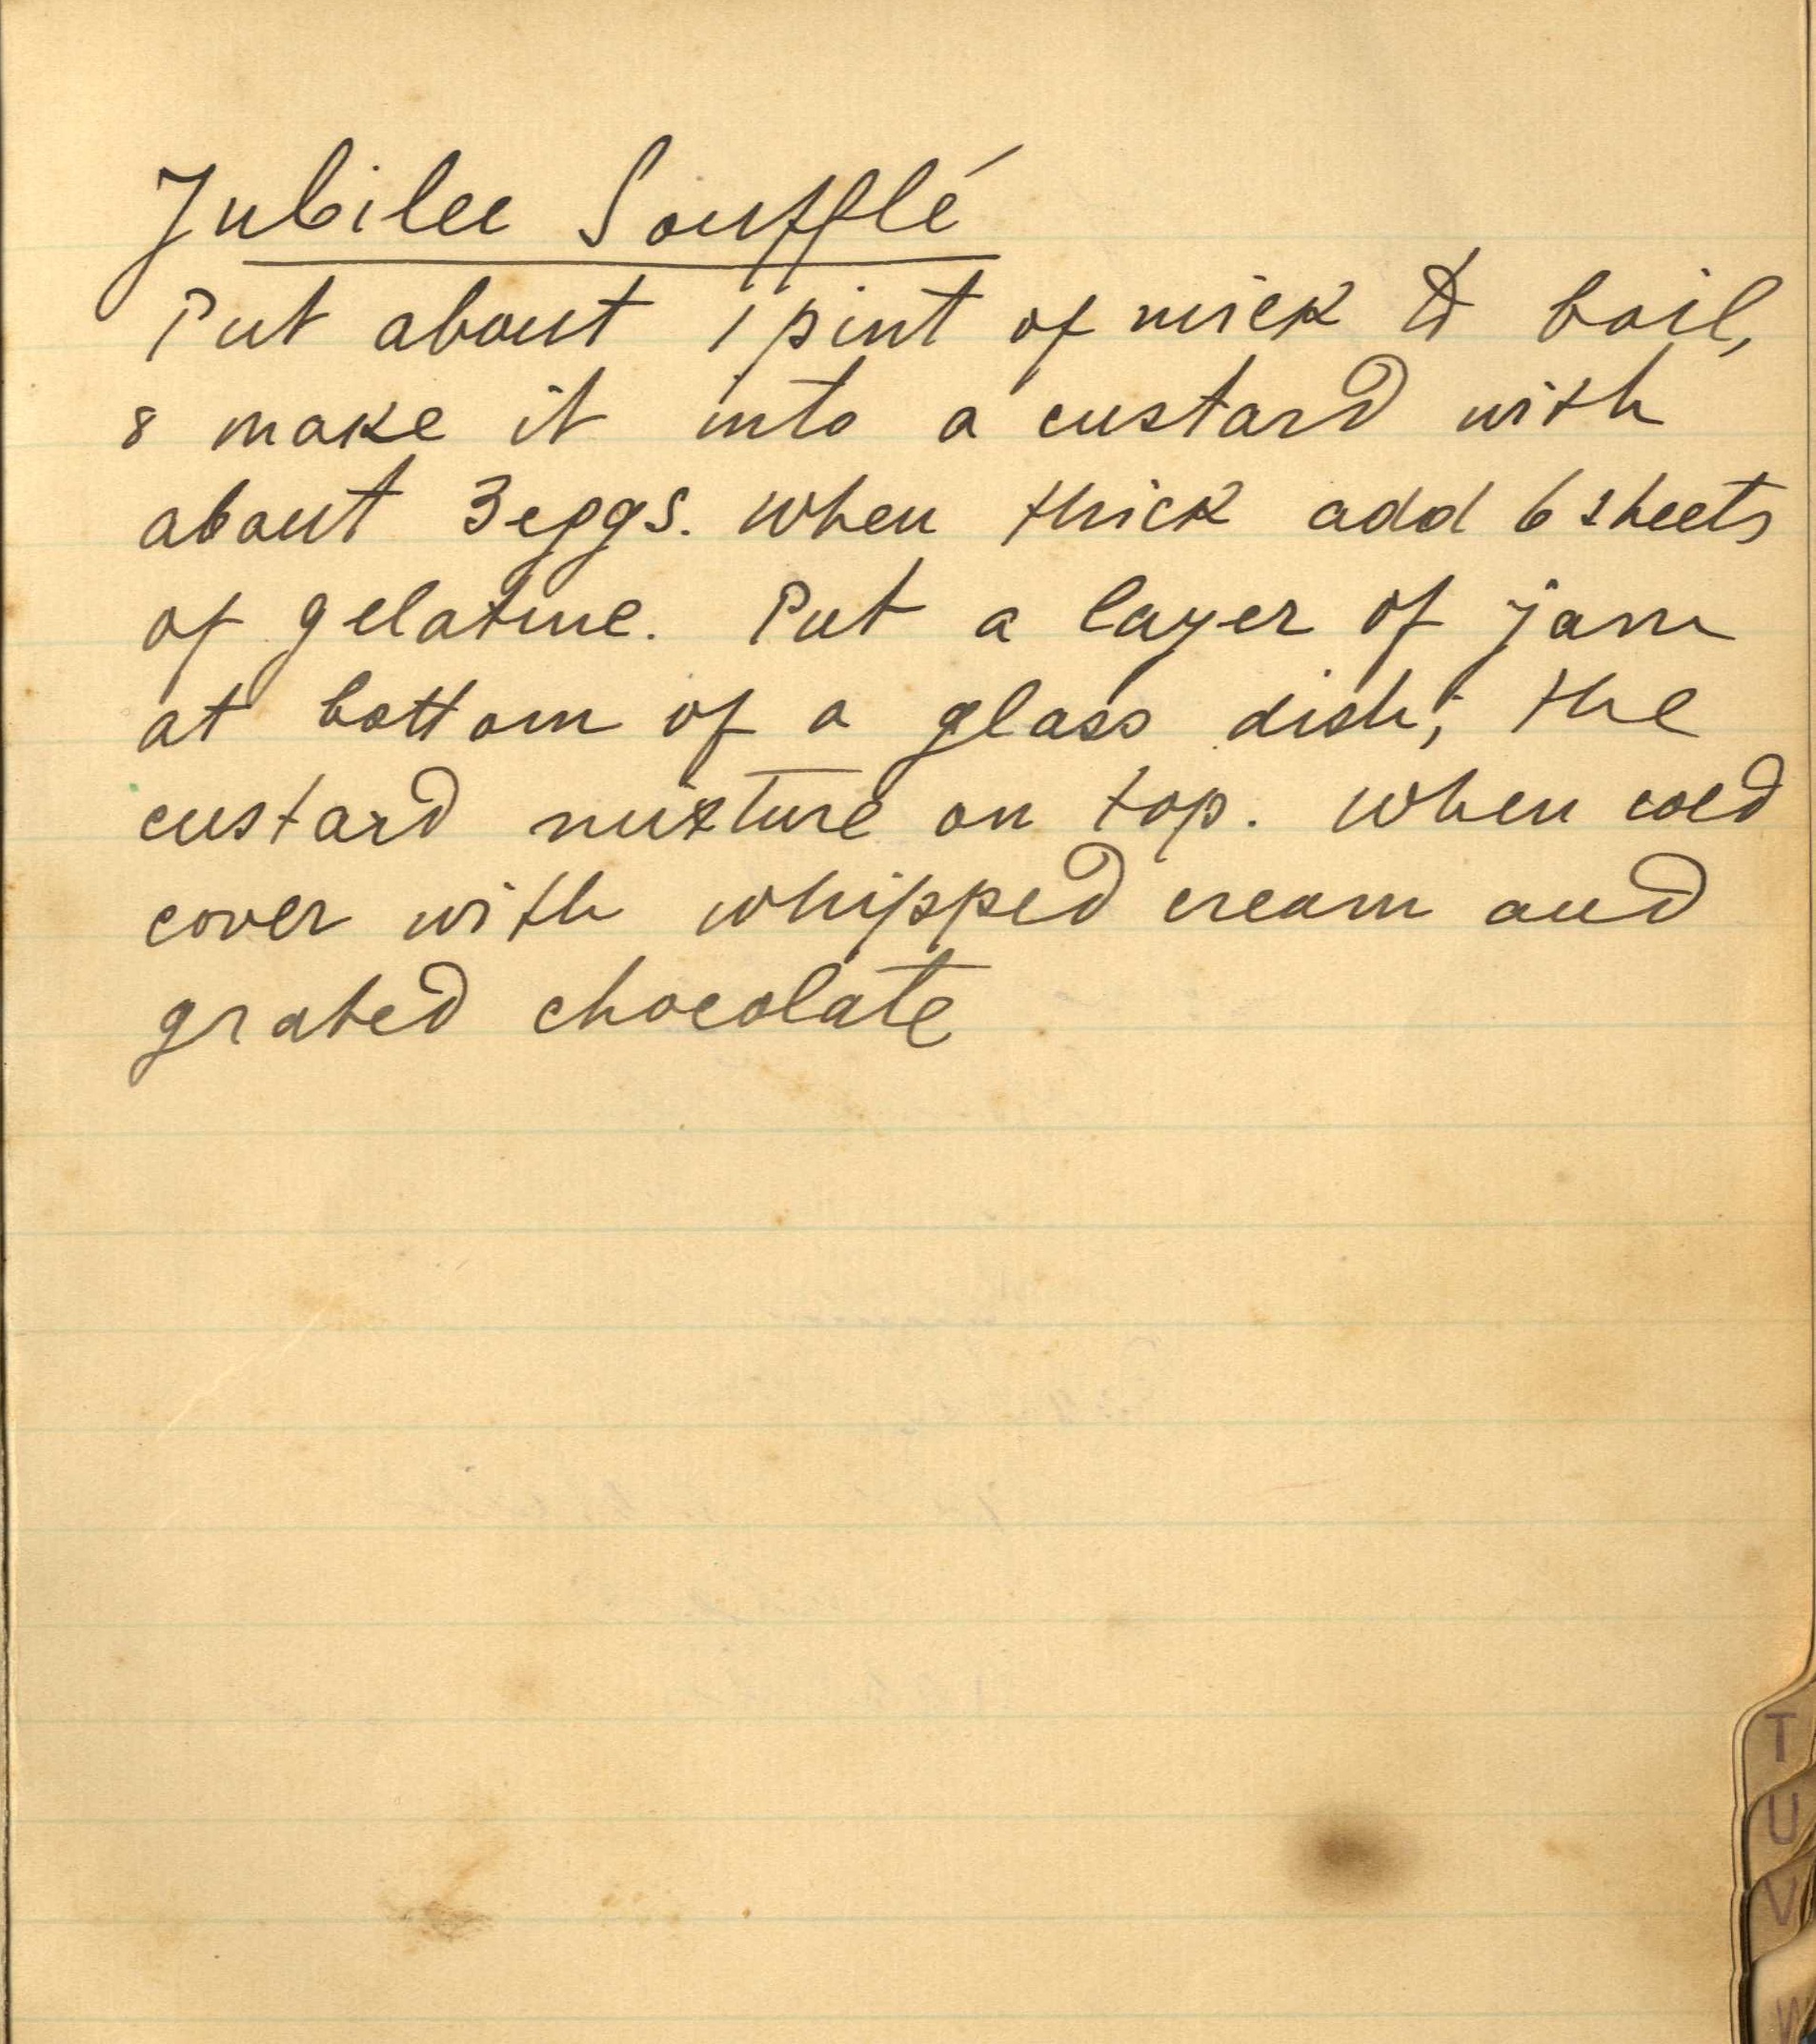 Jubilee Soufflé
Put about 1 pint of milk to boil,
& make it into a custard with
about 3 eggs. When thick add 6 sheets
of gelatine. Put a layer of jam
at bottom of a glass dish, & the
custard mixture on top. When cold
cover with whipped cream and
grated chocolate
T
U
V
W